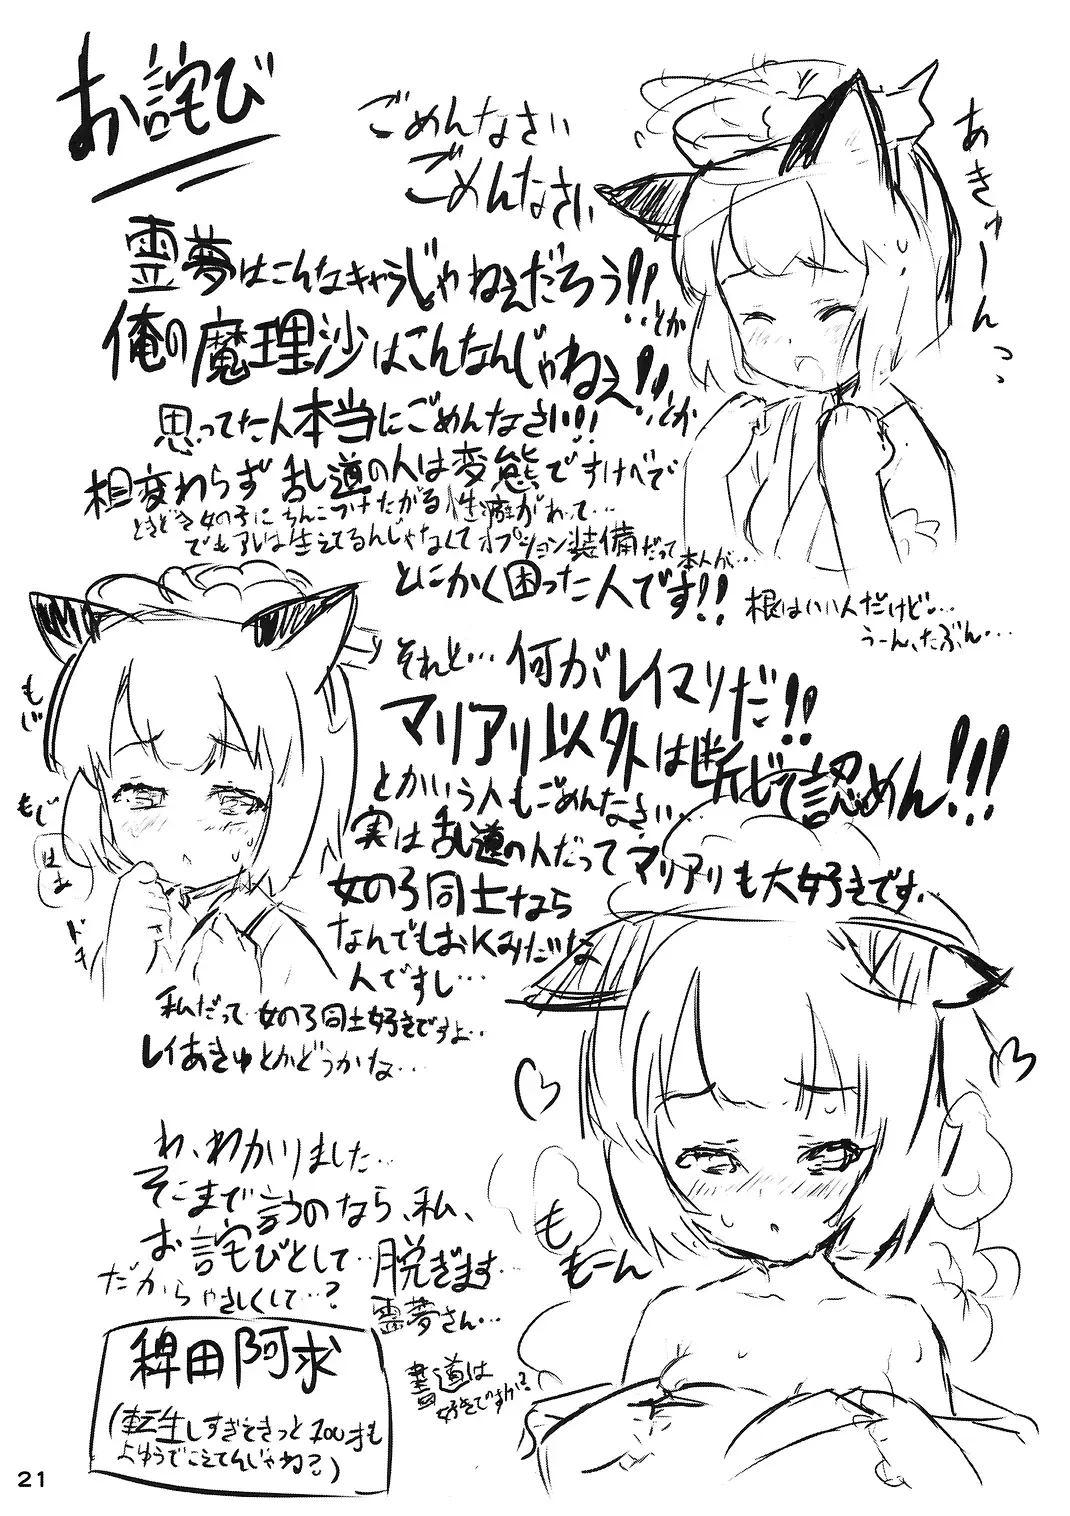 お詫び
ごめんなさい
ごめんなさい
あきゅーんっ
霊夢はこんなキャラじゃねぇだろう!!とか
俺の魔理沙はこんなんじゃねぇ!!とか
思ってた人本当にごめんなさい!!
相変わらず乱道の人は変態ですけべで
ときどき女の子にちんこつけたがる性癖があって…
でもアレは生えてるんじゃなくてオプション装備だって本人が…
とにかく困った人です!!
根はいい人だけど…
うーん、たぶん…
それと…何がレイマリだ!!
マリアリ以外は断じて認めん!!!
とかいう人もごめんなさい…
実は乱道の人だってマリアリも大好きです.
女の子同士なら
なんでもおKみだいな
人ですし…
私だって女の子同士好きですよ…
レイあきゅとかどうかな…
もじ
もじ
はぁ
ドキ
わ、わかりました…
そこまで言うのなら、私、
お詫びとして…脱ぎます…
だからやさしくして…?
霊夢さん…
もも
もーん
稗田阿求
(転生しすぎときっと200才も
よゆうでこえてんじゃね?)
書道は
好きですか?
21